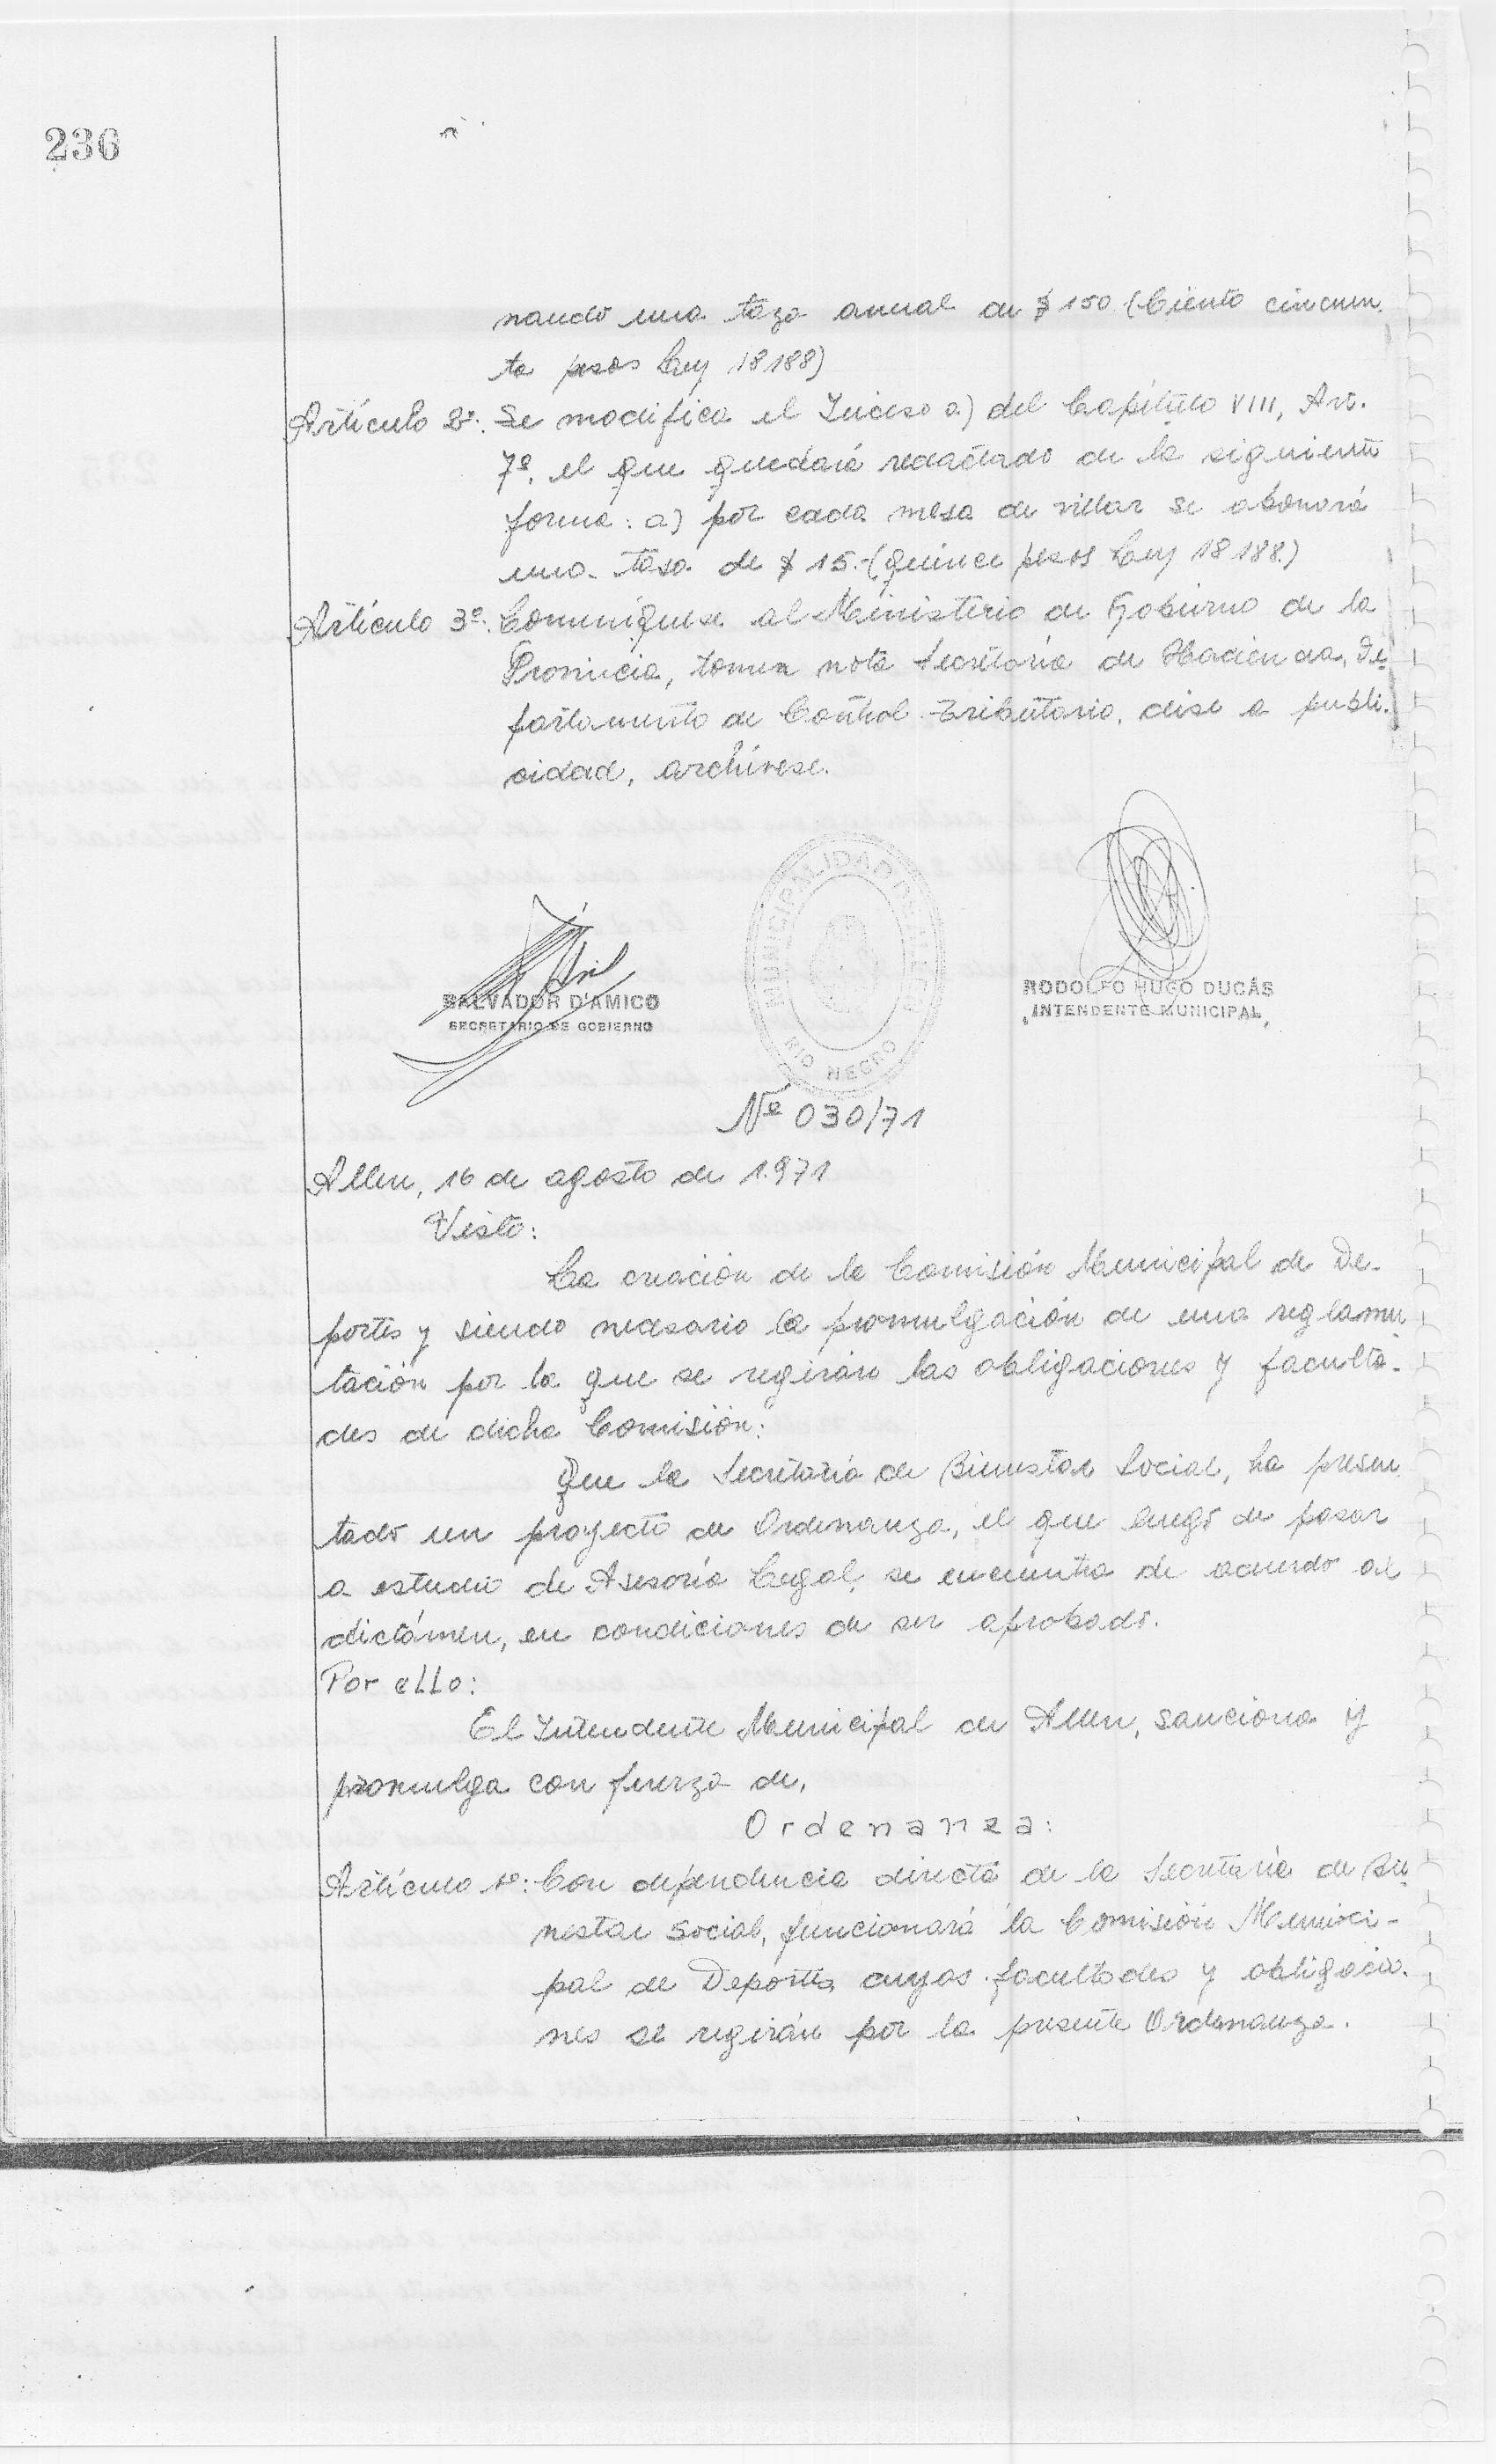 236
nando una taza anual de $ 150 (Ciento cincuen.
ta pesos Ley 18188)
Artículo 2º: Se modifica el Inciso a) del Capítulo VIII, Art.
7º. el que quedará redactado de la siguiente
forma: a) por cada mesa de villar se abonará
una tasa de $ 15.-(quince pesos Ley 18188.)
Artículo 3º: Comuníquese al Ministerio de Gobierno de la
Provincia, tomen nota Secretaría de Hacienda, De-
partamento de Control Tributario, dése a publi-
cidad, archívese.
MUNICIPALIDAD DE ALLEN
RIO NEGRO
SALVADOR D'AMICO
SECRETARIO DE GOBIERNO
RODOLFO HUGO DUCÁS
INTENDENTE MUNICIPAL
Nº 030/71
Allen, 16 de agosto de 1.971
Visto:
La creación de la Comisión Municipal de De-
portes y siendo necesario la promulgación de una reglamen
tación por la que se regirán las obligaciones y faculta-
des de dicha Comisión:
Que la Secretaría de Bienestar Social, ha presen
tado un proyecto de Ordenanza, el que luego de pasar
a estudio de Asesoría Legal, se encuentra de acuerdo al
dictámen, en condiciones de ser aprobado.
Por ello:
El Intendente Municipal de Allen, sanciona y
promulga con fuerza de,
Ordenanza:
Artículo 1º: Con dependencia directa de la Secretaría de Bie
nestar Social, funcionará la Comisión Munici-
pal de Deportes, cuyas facultades y obligacio-
nes se regirán por la presente Ordenanza.